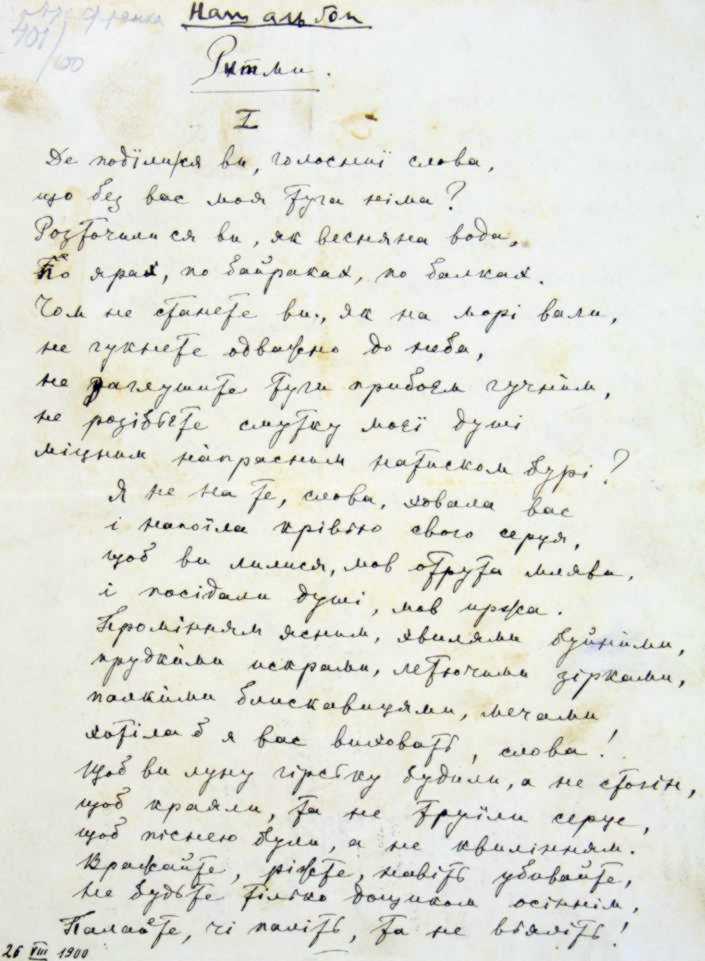 401/100
Наш альбом
Ритми.
I
Де поділися ви, голоснії слова,
що без вас моя туга німа?
Розточилися ви, як весняна вода,
По ярах, по байраках, по балках.
Чом не станете ви, як на морі вали,
не гукнете одважно до неба,
не заглушите туги прибоєм гучним,
не розіб'єте смутку моєї душі
міцним напрасним натиском бурі?
Я не на те, слова, ховала вас
і напоїла крівью свого серця,
щоб ви лилися, мов отрута млява,
і посідали душі, мов иржа.
Промінням ясним, хвилями буйними,
прудкими искрами, летючими зірками,
палкими блискавицями, мечами
хотіла б я вас виховать, слова!
Щоб ви луну гірську будили, а не стогін,
щоб краяли, та не труїли серце,
щоб піснею були, а не квилінням.
Вражайте, ріжте, навіть убивайте,
не будьте тілько дощиком осіннім,
Палайте, чи паліть, та не вьяліть!
26 VIII 1900